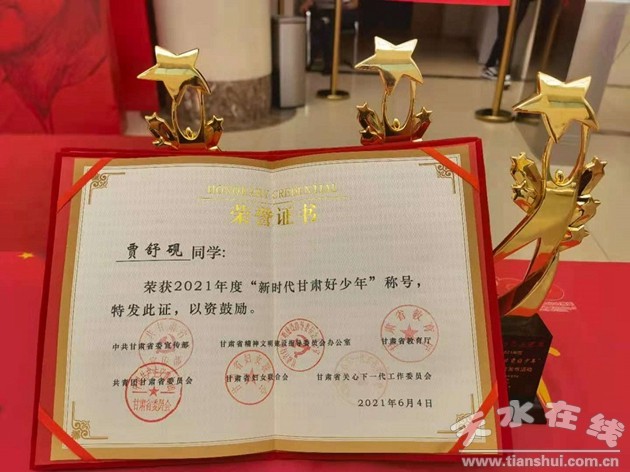 HONORARY CREDENTIAL
荣誉证书
贾舒砚 同学:
荣获2021年度“新时代甘肃好少年”称号，
特发此证，以资鼓励。
中共甘肃省委宣传部 甘肃省精神文明建设指导委员会办公室 甘肃省教育厅
共青团甘肃省委员会 甘肃省妇女联合会 甘肃省关心下一代工作委员会
2021年6月4日
天水在线
www.tianshui.com.cn